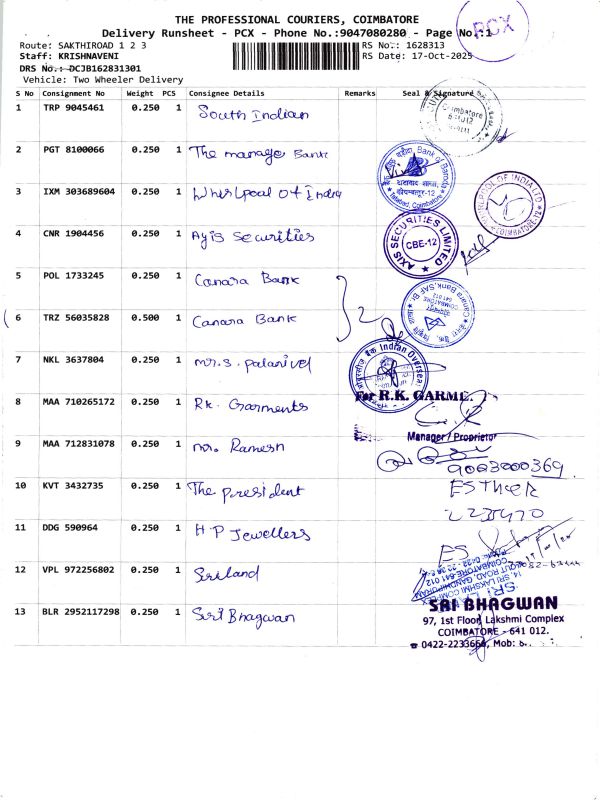 THE PROFESSIONAL COURIERS, COIMBATORE
Delivery Runsheet - PCX - Phone No.:9047080280 - Page No.:1
PCX
Route: SAKTHIROAD 1 2 3
RS No.: 1628313
Staff: KRISHNAVENI
RS Date: 17-Oct-2025
DRS No.: DCJB162831301
Vehicle: Two Wheeler Delivery
S No Consignment No Weight PCS Consignee Details Remarks Seal & Signature
1 TRP 9045461 0.250 1 South Indian
Coimbatore
2 PGT 8100066 0.250 1 The manage Bank
Bank of Baroda
3 IXM 303689604 0.250 1 Whirlpool of India
WHIRLPOOL OF INDIA LTD
COIMBATORE-12
4 CNR 1904456 0.250 1 Axis Securities
AXIS SECURITIES LIMITED
CBE-12
5 POL 1733245 0.250 1 Canara Bank
6 TRZ 56035828 0.500 1 Canara Bank
2
Canara Bank
7 NKL 3637804 0.250 1 Mr.S. Palanivel
Indian Overseas
8 MAA 710265172 0.250 1 R.K. Garments
For R.K. GARME
Manager / Proprietor
9 MAA 712831078 0.250 1 Mr. Ramesh
9003000369
10 KVT 3432735 0.250 1 The president
ESTHER
2235470
11 DDG 590964 0.250 1 H P Jewellers
ES
12 VPL 972256802 0.250 1 Sriland
14, SRI LAKSHMI COMPLEX
COIMBATORE-641 012
13 BLR 2952117298 0.250 1 Sri Bhagwan
SRI BHAGWAN
97, 1st Floor, Lakshmi Complex
COIMBATORE - 641 012.
☎ 0422-2233666, Mob: